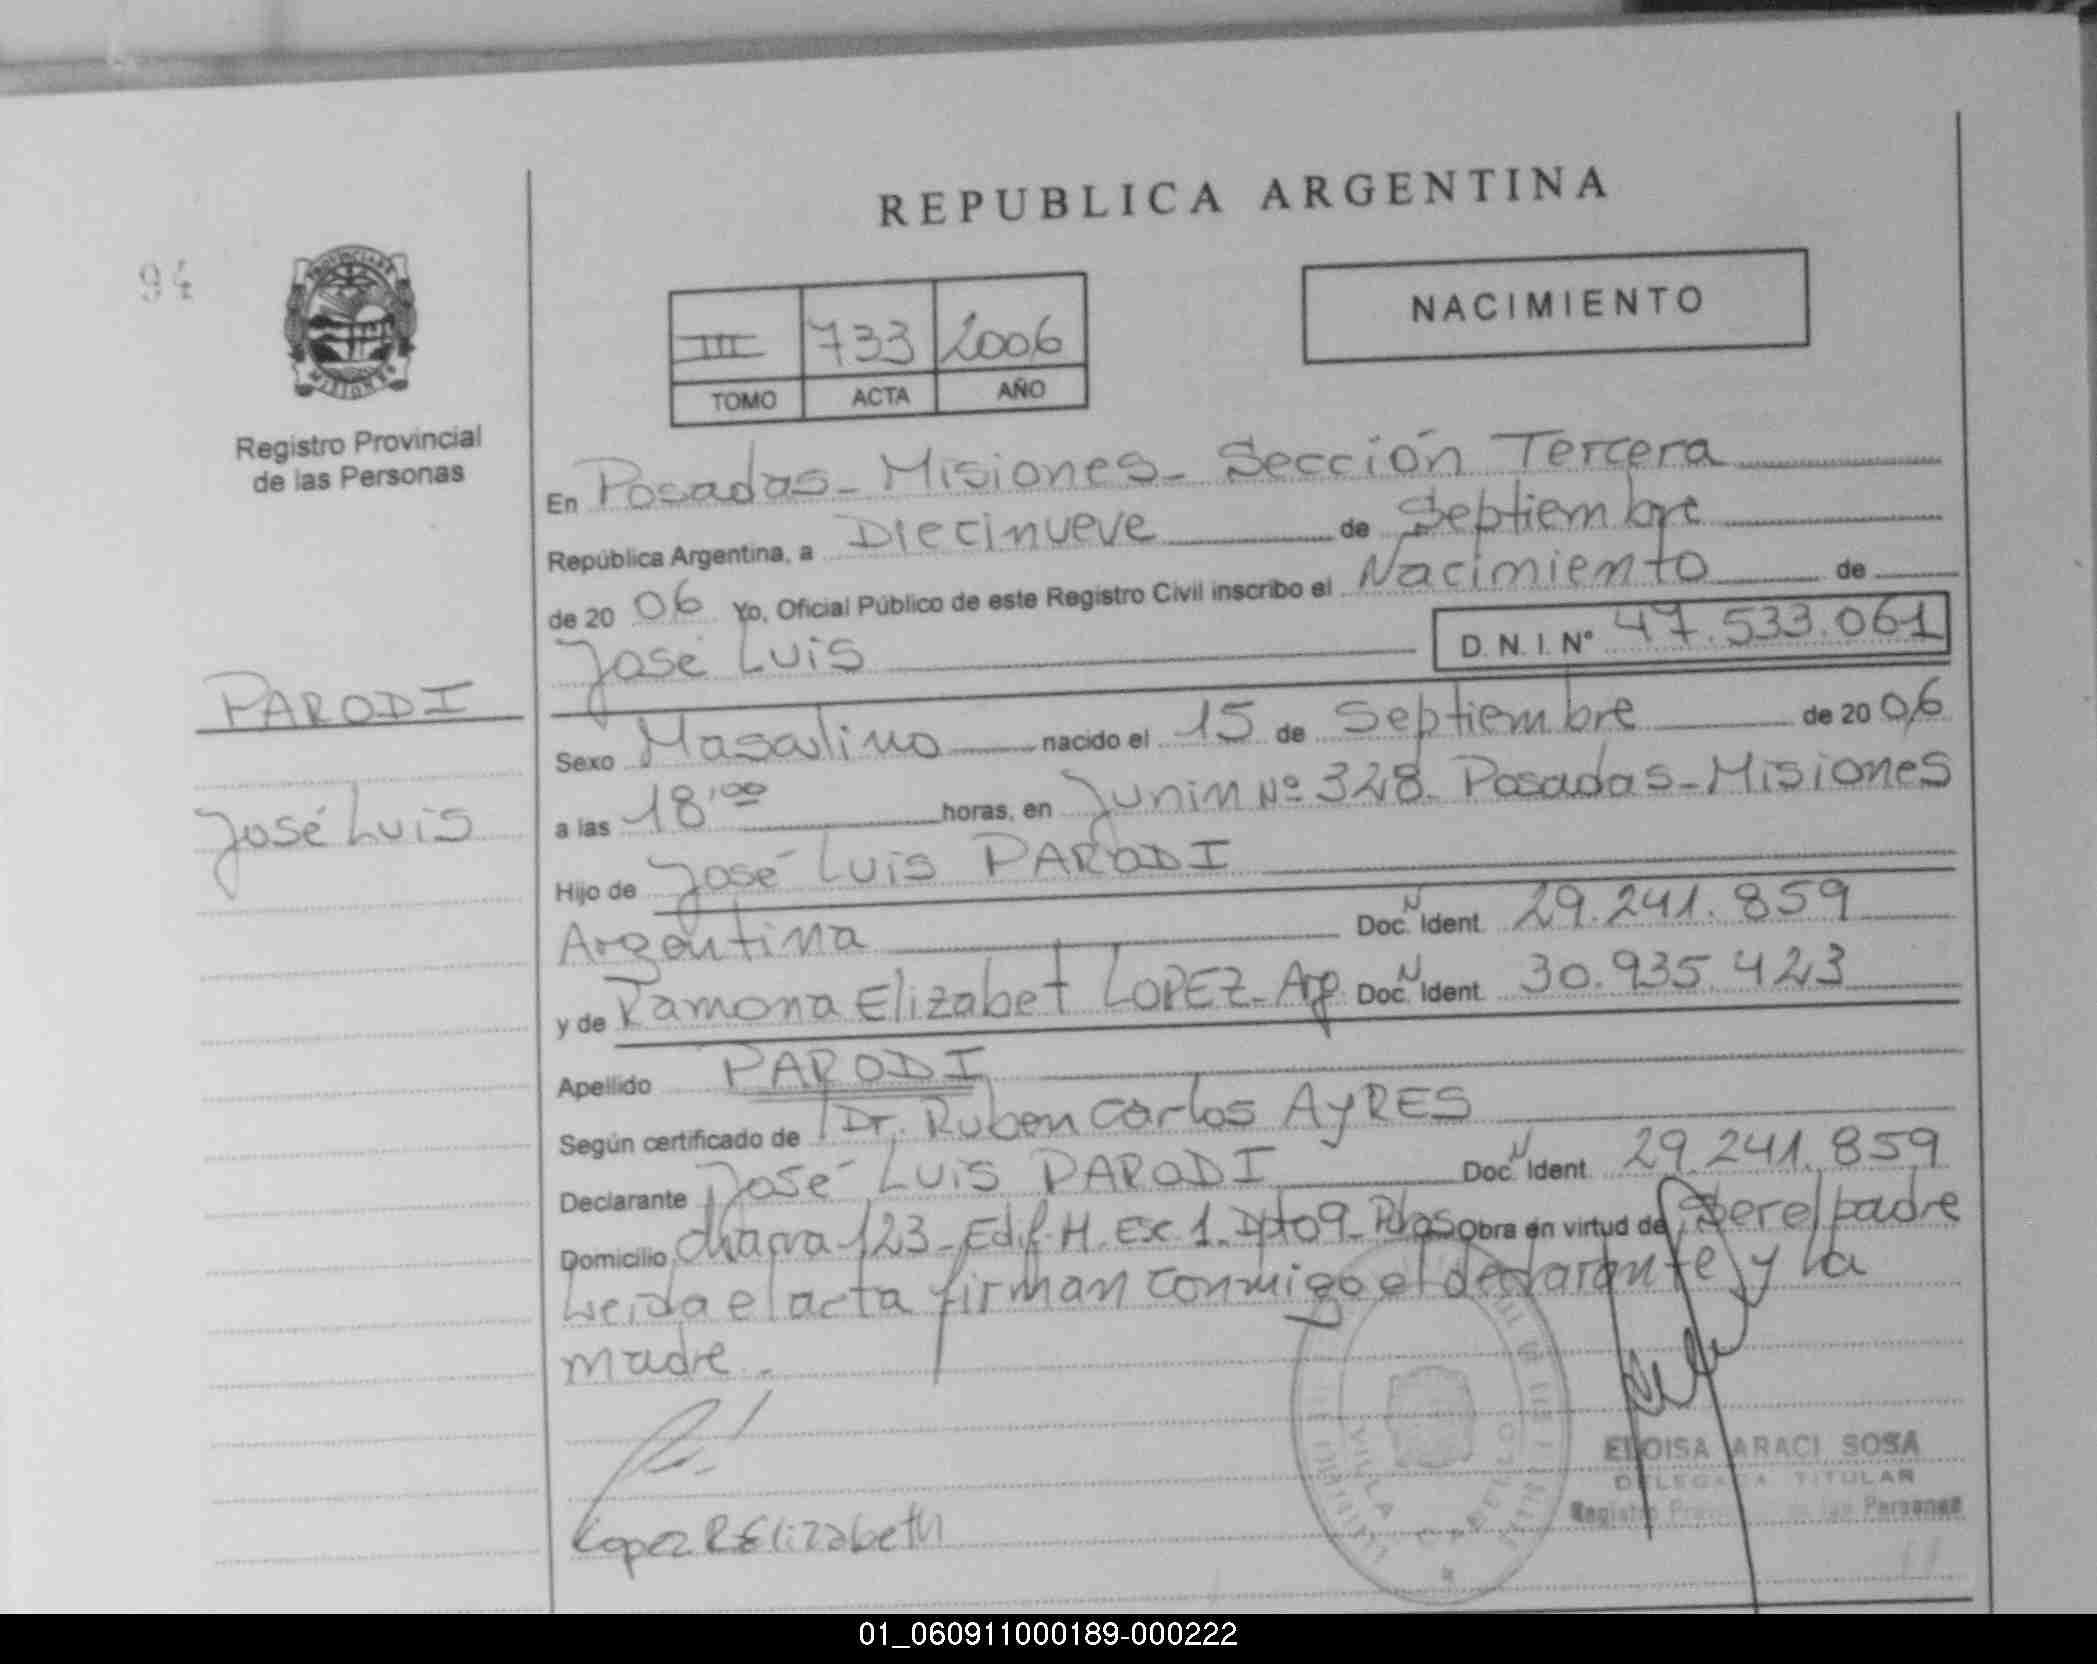 REPUBLICA ARGENTINA
94
PROVINCIA DE
MISIONES
Registro Provincial
de las Personas
III 733 2006
TOMO ACTA AÑO
NACIMIENTO
En Posadas - Misiones - Sección Tercera
República Argentina, a Diecinueve de Septiembre
de 20 06 Yo, Oficial Público de este Registro Civil inscribo el Nacimiento de
José Luis D.N.I. N° 47.533.061
PARODI
José Luis
Sexo Masculino nacido el 15 de Septiembre de 20 06
a las 18,00 horas, en Junin Nº 328. Posadas - Misiones
Hijo de José Luis PARODI
Argentina Doc. N Ident. 29.241.859
y de Ramona Elizabet LOPEZ - Arg. Doc. N Ident. 30.935.423
Apellido PARODI
Según certificado de Dr. Ruben Carlos AYRES
Declarante José Luis PARODI Doc. N Ident. 29.241.859
Domicilio Chacra 123 - Edif. H. Esc 1. Dpto 9 - Pdas Obra en virtud de Ser el padre
Leida el acta firman conmigo el declarante y la
madre.
Lopez R Elizabeth
VILLA CABELLO
ELOISA ARACI SOSA
DELEGADA TITULAR
Registro Provincial de las Personas
01_060911000189-000222